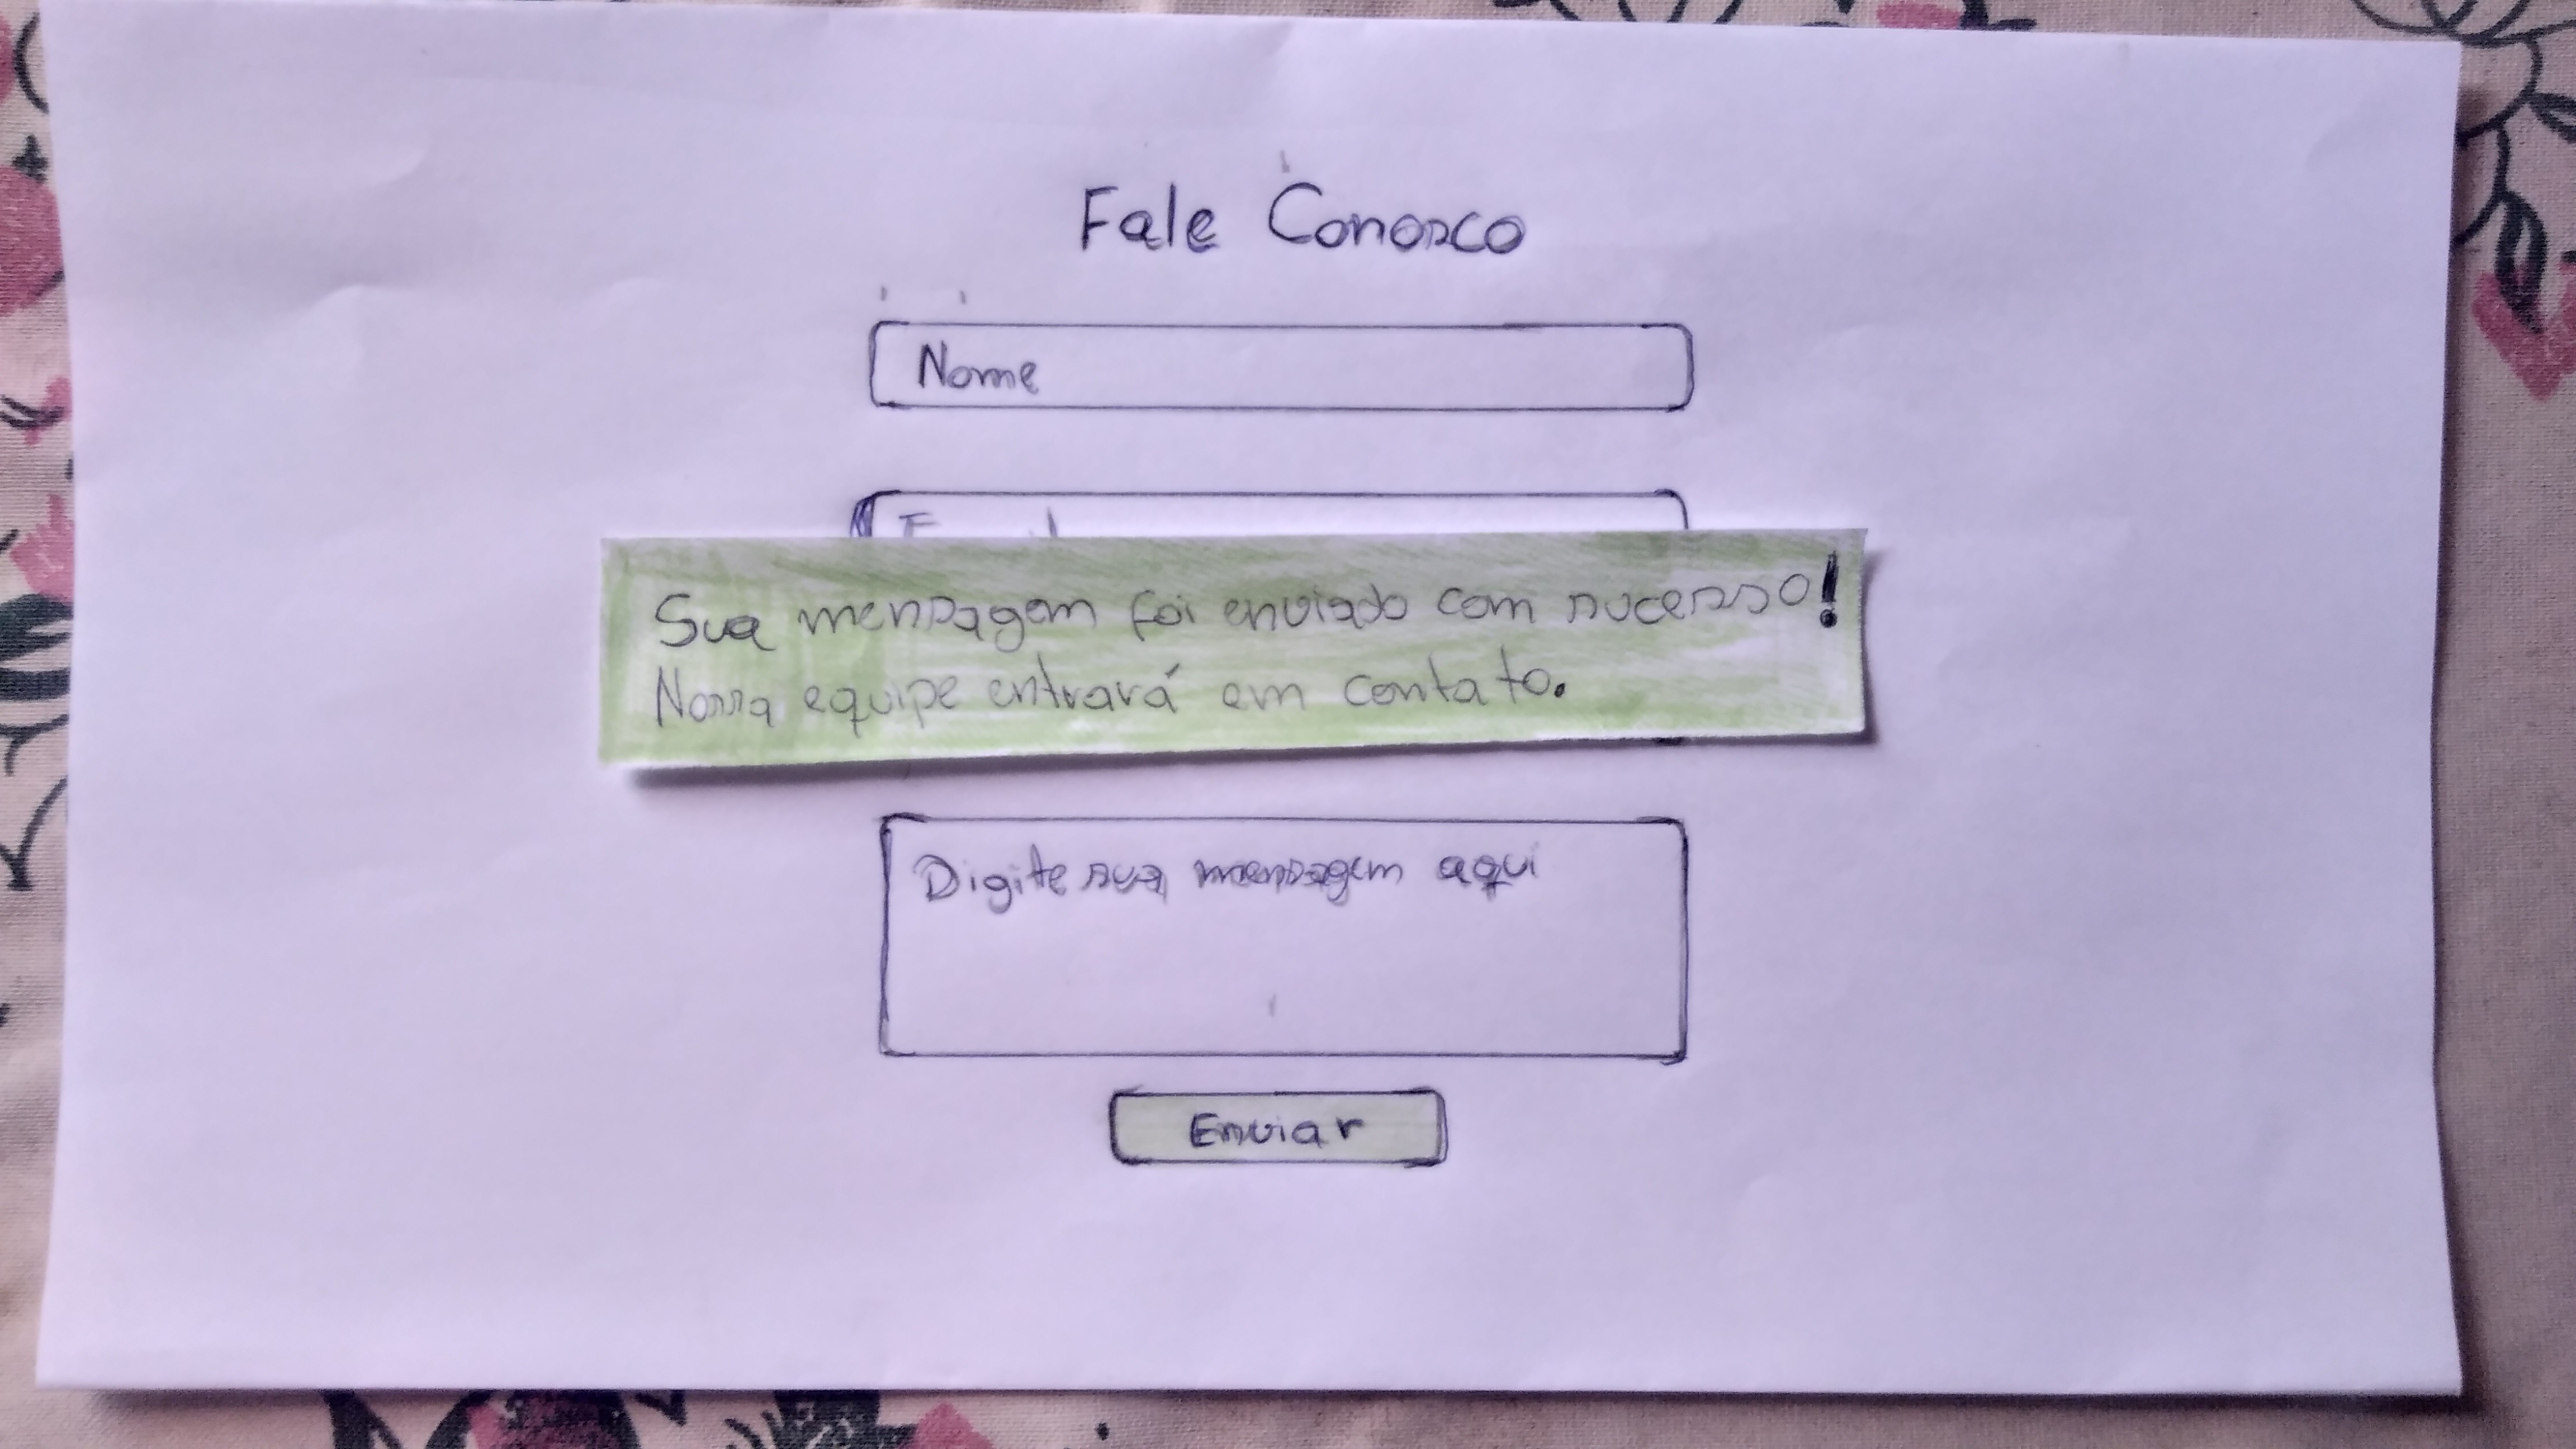 Fale Conosco
Nome
Sua mensagem foi enviado com sucesso!
Nossa equipe entrará em contato.
Digite sua mensagem aqui
Enviar